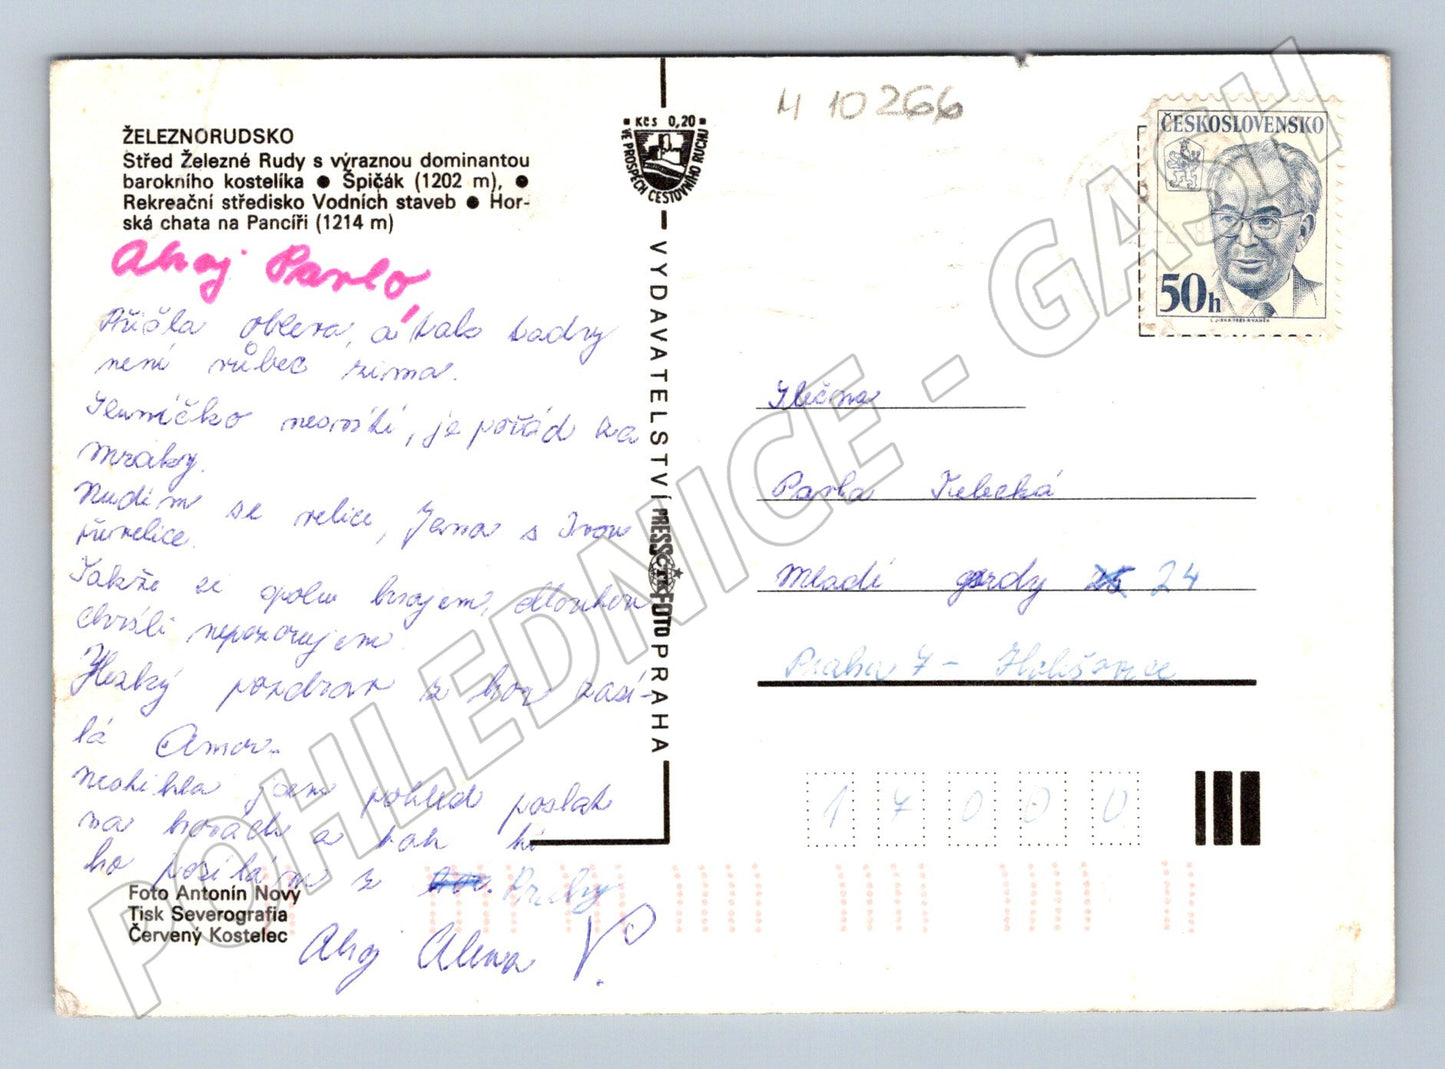 ŽELEZNORUDSKO
Střed Železné Rudy s výraznou dominantou
barokního kostelíka ● Špičák (1202 m), ●
Rekreační středisko Vodních staveb ● Hor-
ská chata na Pancíři (1214 m)
Ahoj Pavlo,
Přišla obleva, a tak tady
není vůbec zima.
Sluníčko nesvítí, je pořád za
mraky.
Nudím se velice, Jana s Ivou
převelice.
Takže si spolu hrajem,
chvíli nepozorujem.
Hezký pozdrav z hor zasí-
lá
Nestihla jsem pohled poslat
na horách a tak ti
ho posílám z Prahy
Ahoj Alena
Foto Antonín Nový
Tisk Severografia
Červený Kostelec
Kčs 0,20
VE PROSPĚCH CESTOVNÍHO RUCHU
VYDAVATELSTVÍ PRESSFOTO PRAHA
ČTK
M 10266
ČESKOSLOVENSKO
50h
Slečna
Pavla
Mladí gardy 24
Praha 7 - Holešovice
17000
POHLEDNICE - GASH